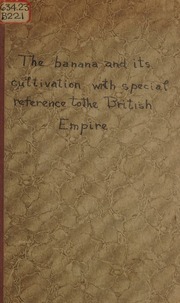 634.25
B221
The banana and its
cultivation with special
reference to the British
Empire